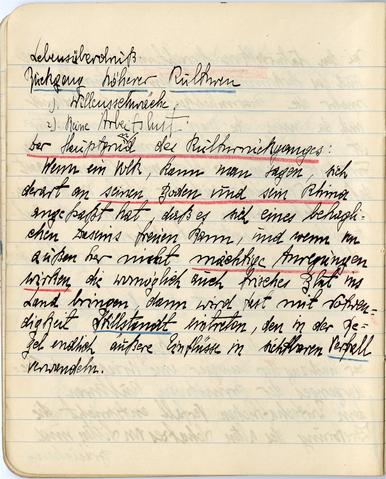 Lebensüberdruß
Rückgang höherer Kulturen
1.) Willensschwäche
2.) Keine Arbeitslust.
Der Hauptgrund des Kulturrückganges:
Wenn ein Volk, kann man sagen, sich
derart an seinen Boden und sein Klima
angepaßt hat, daß es sich eines behagli-
chen Daseins freuen kann, und wenn von
außen her nicht mächtige Anregungen
wirken, die womöglich auch frisches Blut ins
Land bringen dann wird fast mit Notwen-
digkeit Stillstand eintreten, den in der Re-
gel endlich äußere Einflüsse in sichtbaren Verfall
verwandeln.